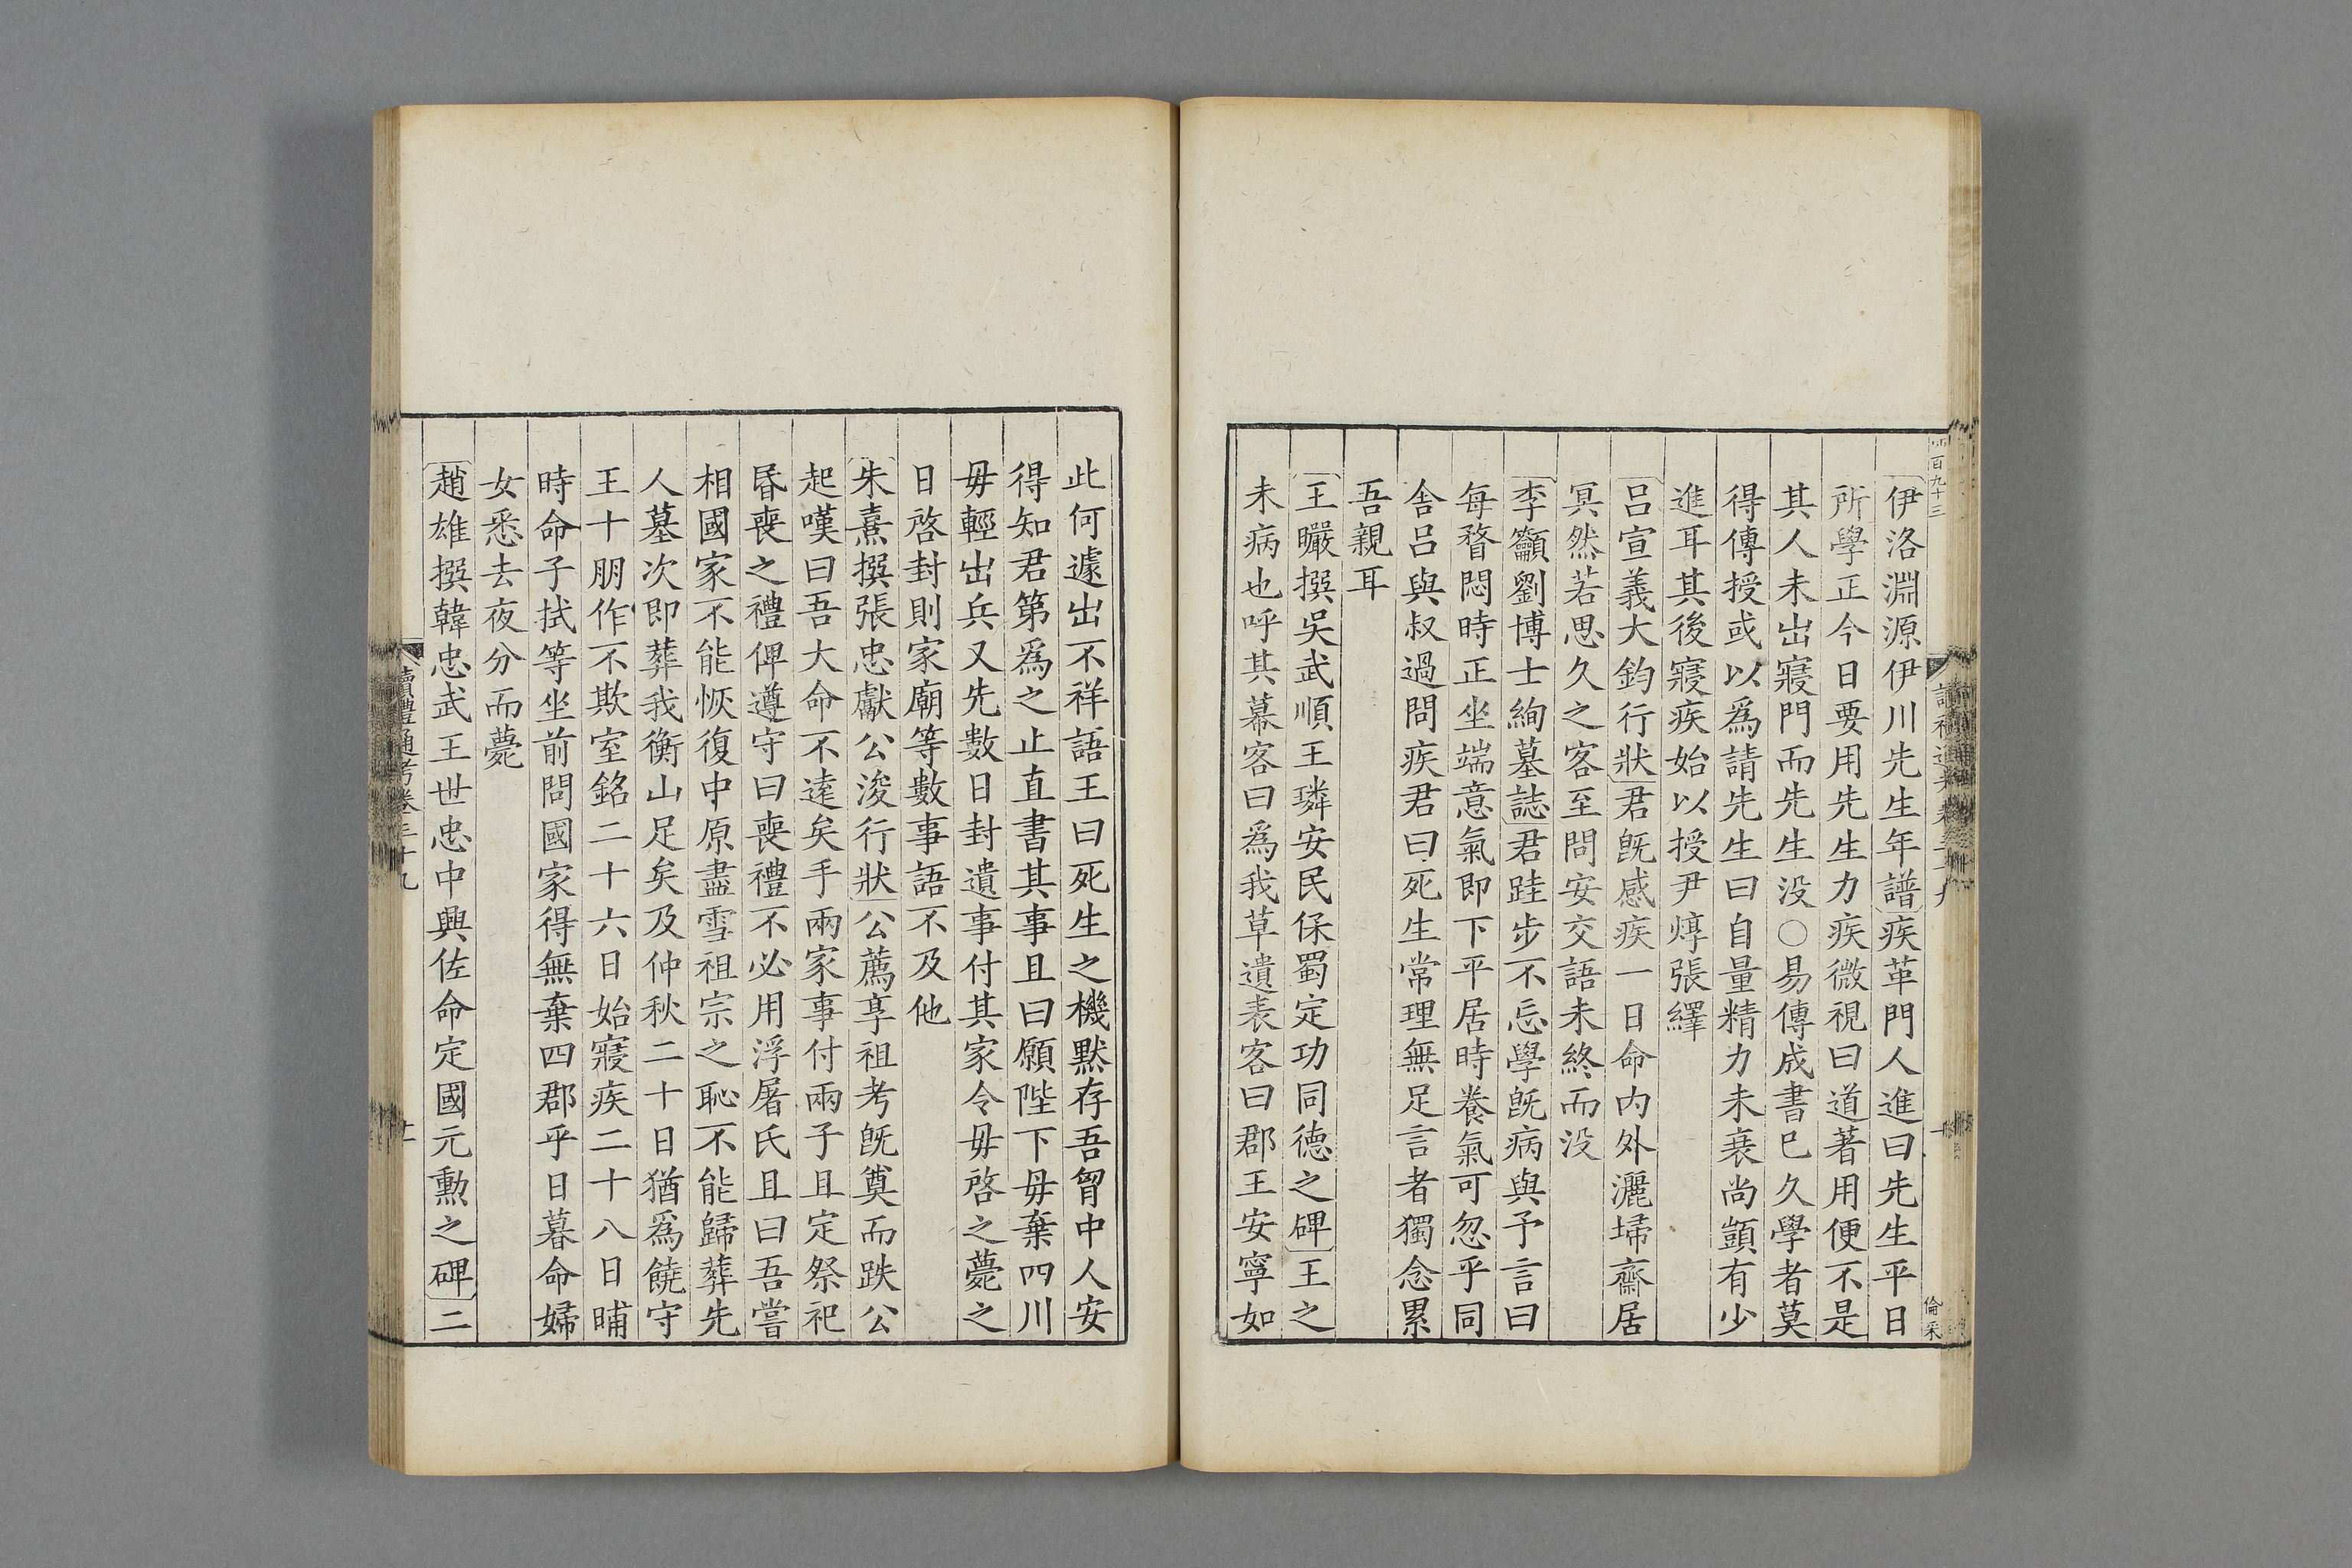 伊洛淵源伊川先生年譜疾革門人進曰先生平日
所學正今日要用先生力疾微視曰道著用便不是
其人未出寢門而先生没○易傳成書已久學者莫
得傳授或以爲請先生曰自量精力未衰尚顗有少
進耳其後寢疾始以授尹焞張繹
呂宣義大鈞行狀君旣感疾一日命内外灑埽齋居
冥然若思久之客至問安交語未終而没
李籲劉博士絢墓誌君跬步不忘學旣病與予言曰
每瞀悶時正坐端意氣即下平居時養氣可忽乎同
舍呂與叔過問疾君曰死生常理無足言者獨念累
吾親耳
王曮撰吳武順王璘安民保蜀定功同德之碑王之
未病也呼其幕客曰爲我草遺表客曰郡王安寧如
百九十三
倫采
此何遽出不祥語王曰死生之機默存吾胷中人安
得知君第爲之止直書其事且曰願陛下毋棄四川
毋輕出兵又先數日封遺事付其家令毋啓之薨之
日啓封則家廟等數事語不及他
朱熹撰張忠獻公浚行狀公薦享祖考旣奠而跌公
起嘆曰吾大命不逺矣手兩家事付兩子且定祭祀
昬喪之禮俾遵守曰喪禮不必用浮屠氏且曰吾嘗
相國家不能恢復中原盡雪祖宗之恥不能歸葬先
人墓次即葬我衡山足矣及仲秋二十日猶爲饒守
王十朋作不欺室銘二十六日始寢疾二十八日晡
時命子拭等坐前問國家得無棄四郡乎日暮命婦
女悉去夜分而薨
趙雄撰韓忠武王世忠中興佐命定國元勳之碑二
讀禮通考卷三十九